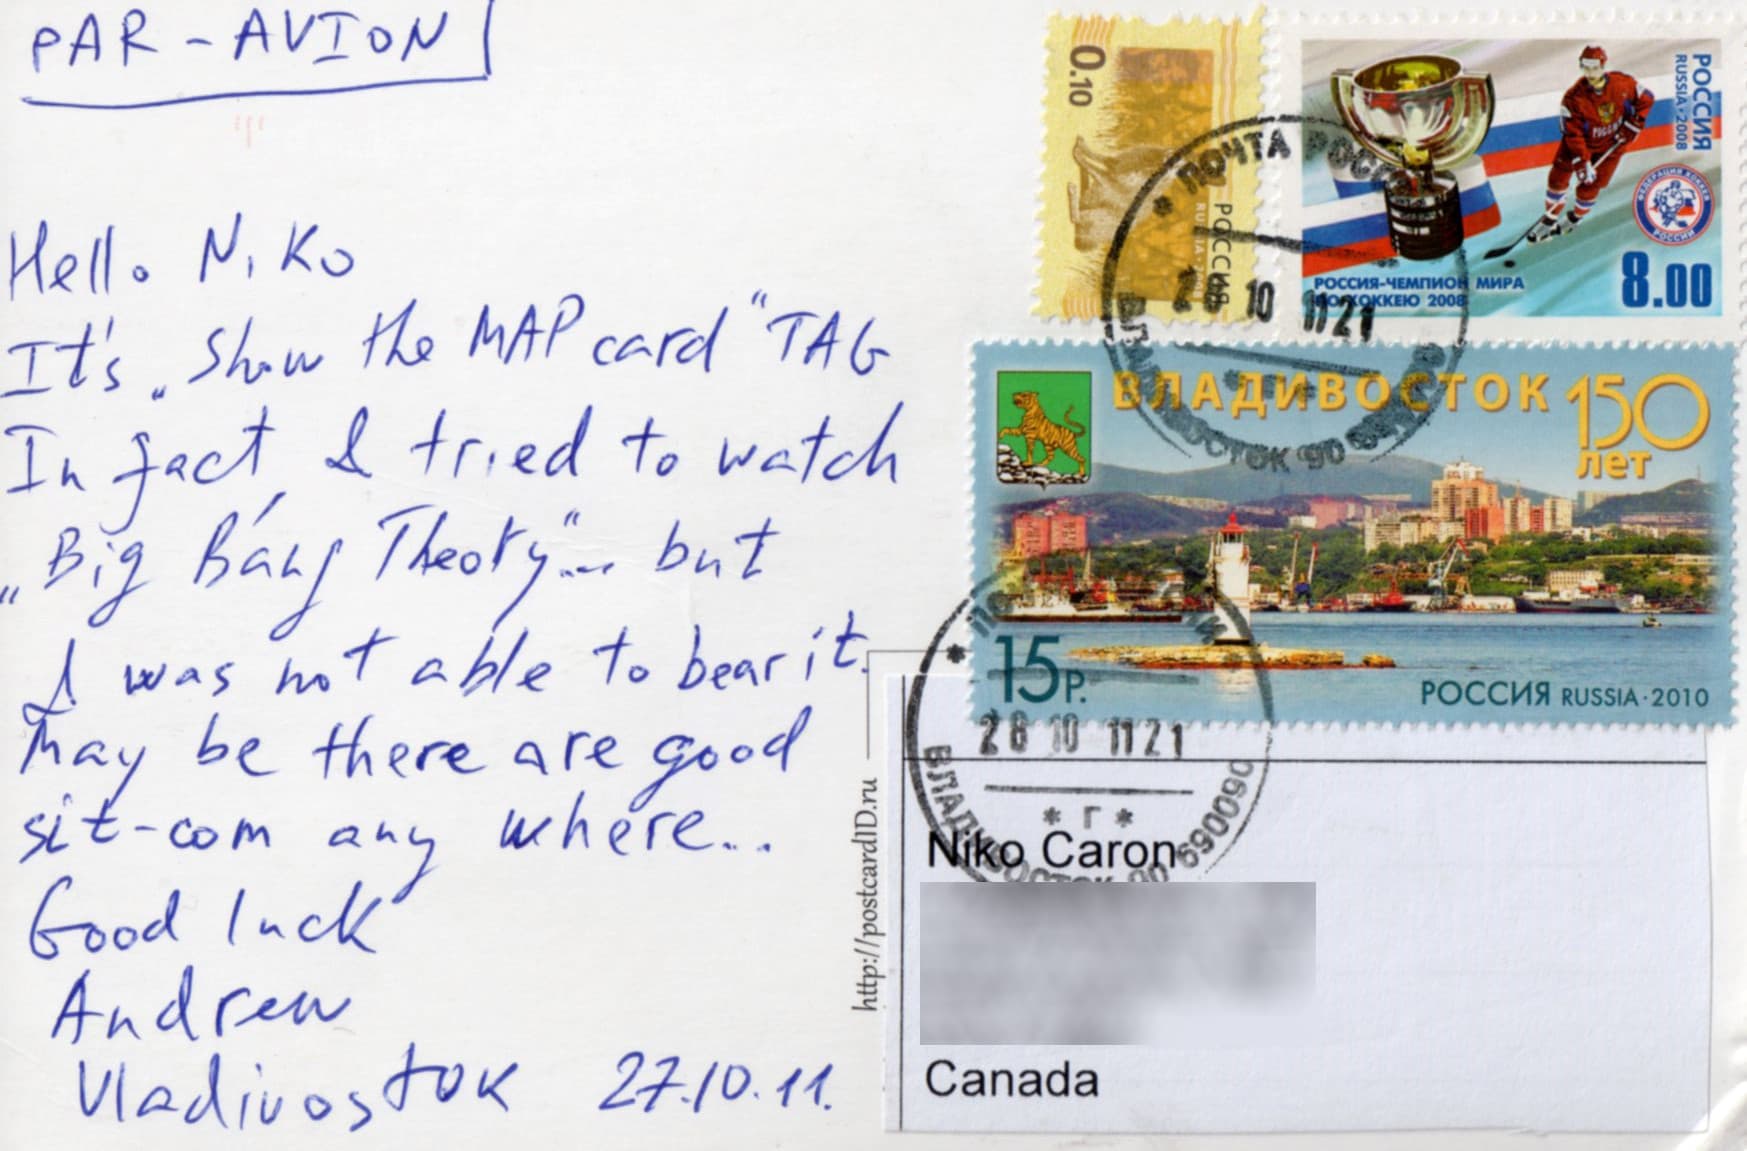 PAR-AVION
Hello Niko
It's „Show the MAP card" TAG
In fact I tried to watch
„Big Bang Theory"... but
I was not able to bear it.
May be there are good
sit-com any where...
Good luck
Andrew
Vladivostok 27.10.11.
0.10
РОССИЯ
RUSSIA
РОССИЯ
RUSSIA·2008
ФЕДЕРАЦИЯ ХОККЕЯ РОССИИ
РОССИЯ-ЧЕМПИОН МИРА
ПО ХОККЕЮ 2008
8.00
ПОЧТА РОССИИ
28 10 1121
ВЛАДИВОСТОК 90 690090
ВЛАДИВОСТОК 150
лет
15 Р.
РОССИЯ RUSSIA·2010
28 10 1121
* Г *
ВЛАДИВОСТОК 90 690090
http://postcardID.ru
Niko Caron
Canada